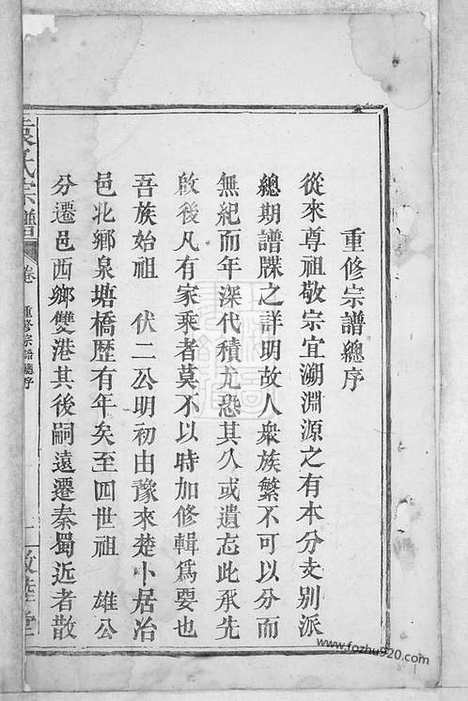 重修宗譜總序
從來尊祖敬宗宜溯淵源之有本分支別派
總期譜牒之詳明故人衆族繁不可以分而
無紀而年深代積尤恐其久或遺忘此承先
啟後凡有家乘者莫不以時加修輯爲要也
吾族始祖 伏二公明初由豫來楚卜居冶
邑北鄉泉塘橋歷有年矣至四世祖 雄公
分遷邑西鄉雙港其後嗣遠遷秦蜀近者散
袁氏宗譜 卷 重修宗譜總序 一 敦睦堂
www.fozhu920.com